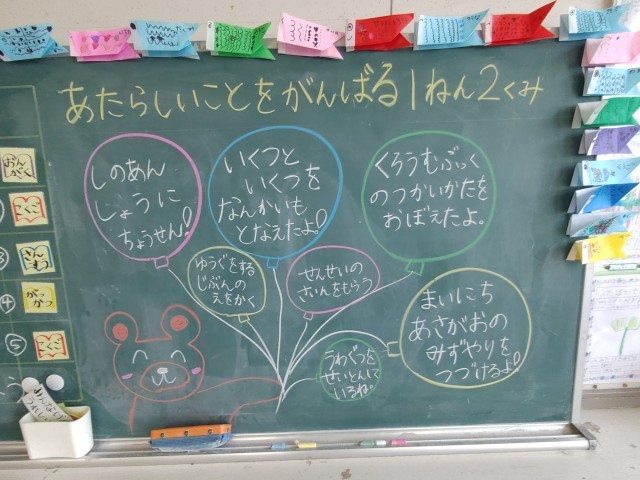 あたらしいことをがんばる1ねん2くみ
しのあん
しょうに
ちょうせん!
いくつと
いくつを
なんかいも
となえたよ!
くろうむぶっく
のつかいかたを
おぼえたよ。
ゆうぐをする
じぶんの
えをかく
せんせいの
さいんをもらう
うわぐつを
せいとんして
いるね。
まいにち
あさがおの
みずやりを
つづけるよ!
おん
がく
こくご
さん
すう
④
がっ
かつ
⑤
こくご